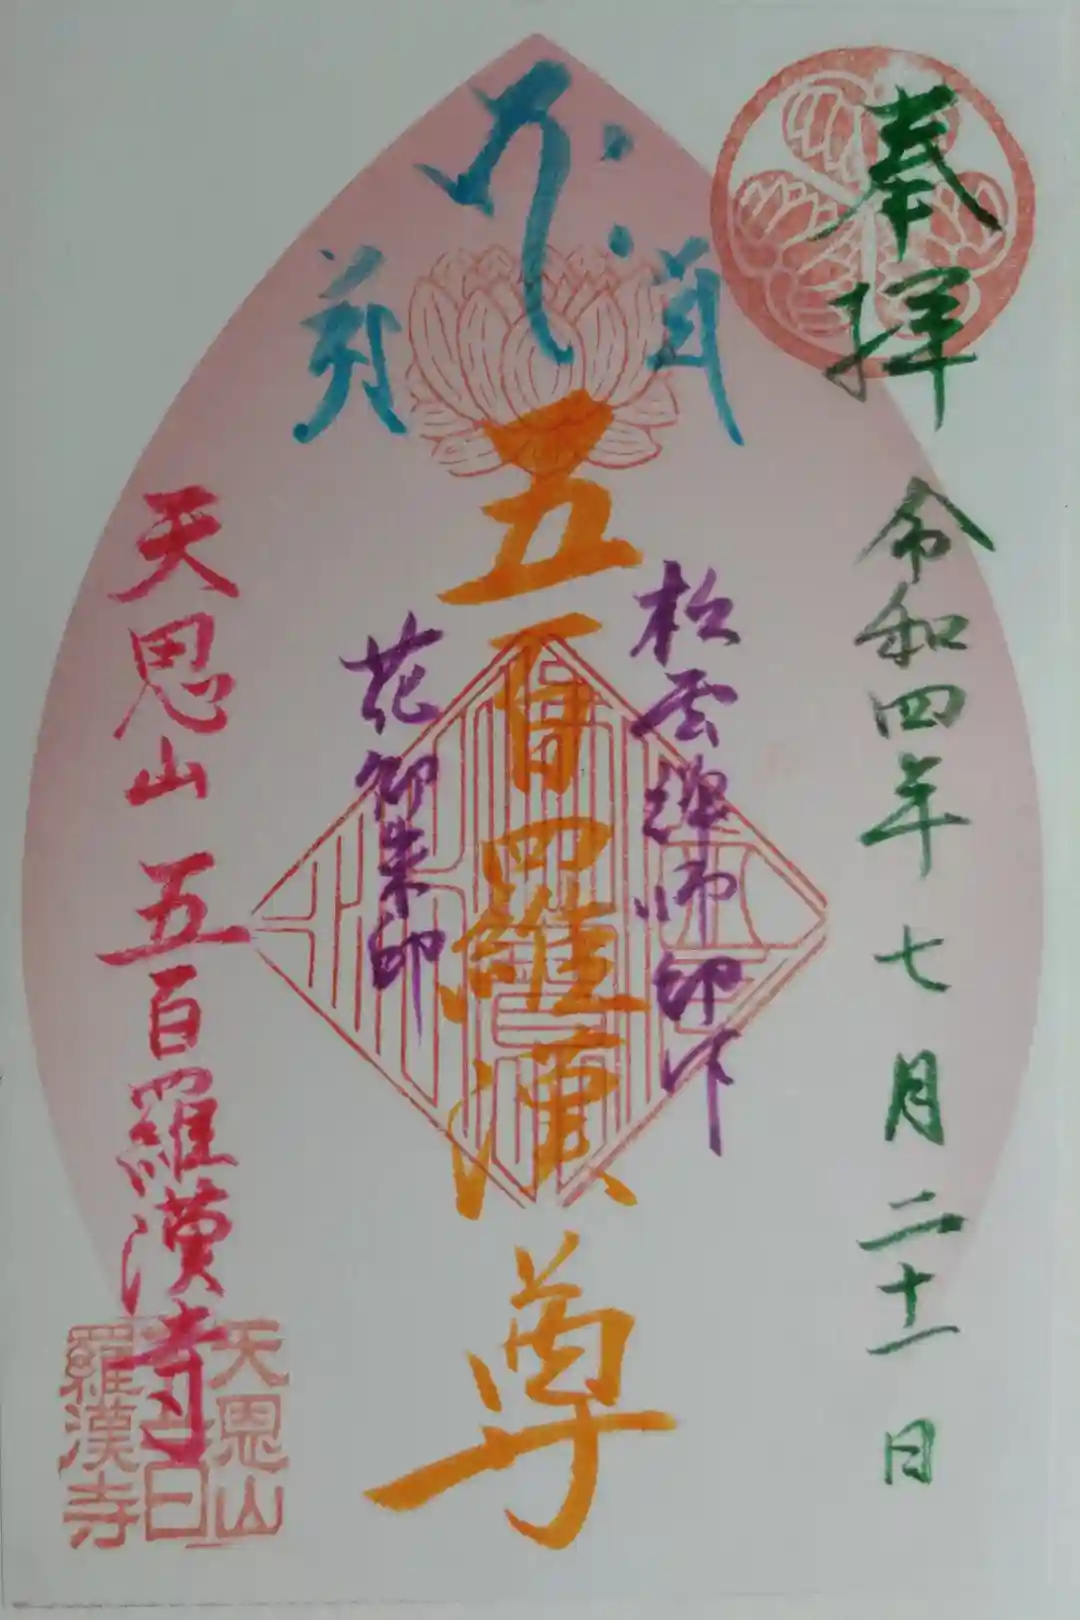 奉拝
令和四年七月二十一日
松雲禅師印下
五百羅漢尊
花御朱印
天恩山五百羅漢寺
天恩山
五百
羅漢寺